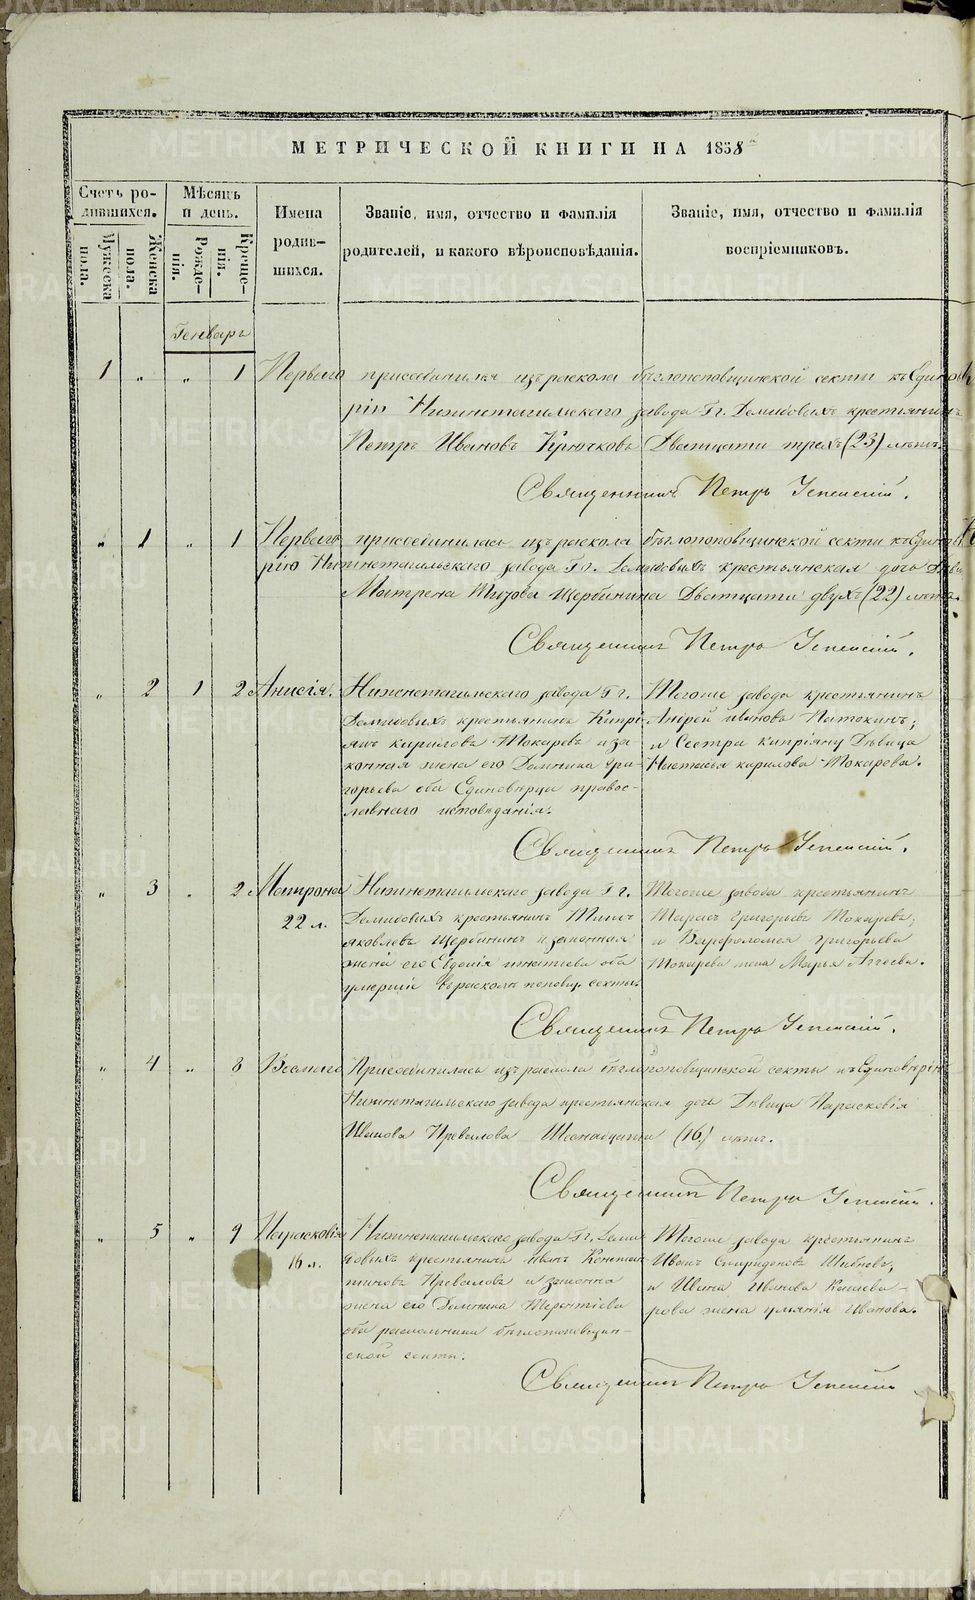 МЕТРИЧЕСКОЙ КНИГИ НА 1858
Счетъ ро-
дившихся.
Мужеска
пола.
Женска
пола.
Мѣсяцъ
и день.
Рожде-
нія.
Креще-
нія.
Имена
родив-
шихся.
Званіе, имя, отчество и фамилія
родителей, и какого вѣроисповѣданія.
Званіе, имя, отчество и фамилія
воспріемниковъ.
Генварь
1 " " 1 Перваго присоединился изъ раскола бѣглопоповщинской секты къ Единовѣ
рію Нижнетагильскаго завода Гг. Демидовыхъ крестьянинъ
Петръ Ивановъ Крючковъ Дватцати трехъ (23) лѣтъ.
Священникъ Петръ Успенскій.
" 1 " 1 Перваго присоединилась изъ раскола бѣглопоповщинской секты къ Единовѣ
рію Нижнетагильскаго завода Гг. Демидовыхъ крестьянская дочь Дѣви
Матрена Щербинина Дватцати двухъ (22) лѣтъ.
Священникъ Петръ Успенскій.
" 2 1 2 Анисія. Нижнетагильскаго завода Гг.
Демидовыхъ крестьянинъ Кипрі-
янъ Кириловъ Токаревъ и за
конная жена его Домника Гри-
горьева оба Единовѣрцы правос-
лавнаго исповѣданія.
Тогоже завода крестьянинъ
Андрей Ивановъ Потокинъ;
и Сестра Кипріяну Дѣвица
Настасья Кирилова Токарева.
Священникъ Петръ Успенскій.
" 3 " 2 Матрона
22 л.
Нижнетагильскаго завода Гг.
Демидовыхъ крестьянинъ Титъ
Яковлевъ Щербининъ и законная
жена его Евдокія Игнатіева оба
умершіе въ расколѣ поповщ. секты.
Тогоже завода крестьянинъ
Тарасъ Григорьевъ Токаревъ;
и Варфоломея Григорьева
Токарева жена Марья Аггеева.
Священникъ Петръ Успенскій.
" 4 " 8 Восмаго Присоединилась изъ раскола бѣглопоповщинской секты къ Единовѣрію
Нижнетагильскаго завода крестьянская дочь Дѣвица Парасковія
Иванова Превалова Шеснадцати (16) лѣтъ.
Священникъ Петръ Успенскій.
" 5 " 9 Парасковія
16 л.
Нижнетагильскаго завода Гг. Деми
довыхъ крестьянинъ Иванъ Констан
тиновъ Преваловъ и законна
жена его Домнина Терентіева
оба раскольники бѣглопоповщин-
ской секты.
Тогоже завода крестьянинъ
Иванъ Спиридоновъ Шибневъ;
и Иванова Кашева-
рова жена Иванова.
Священникъ Петръ Успенскій
METRIKI.GASO-URAL.RU